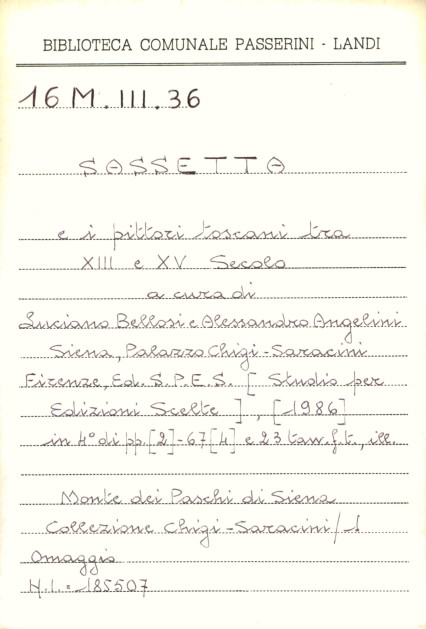 BIBLIOTECA COMUNALE PASSERINI - LANDI
16 M. III. 36
SASSETTA
e i pittori toscani tra
XIII e XV Secolo
a cura di
Luciano Bellosi e Alessandro Angelini
Siena, Palazzo Chigi-Saracini
Firenze, Ed. S.P.E.S. [ Studio per
Edizioni Scelte ] , [1986]
in 4° di pp. [2]-67[4] e 23 tav. f. t., ill.
Monte dei Paschi di Siena
Collezione Chigi-Saracini/1
Omaggio
N.I. = 185507